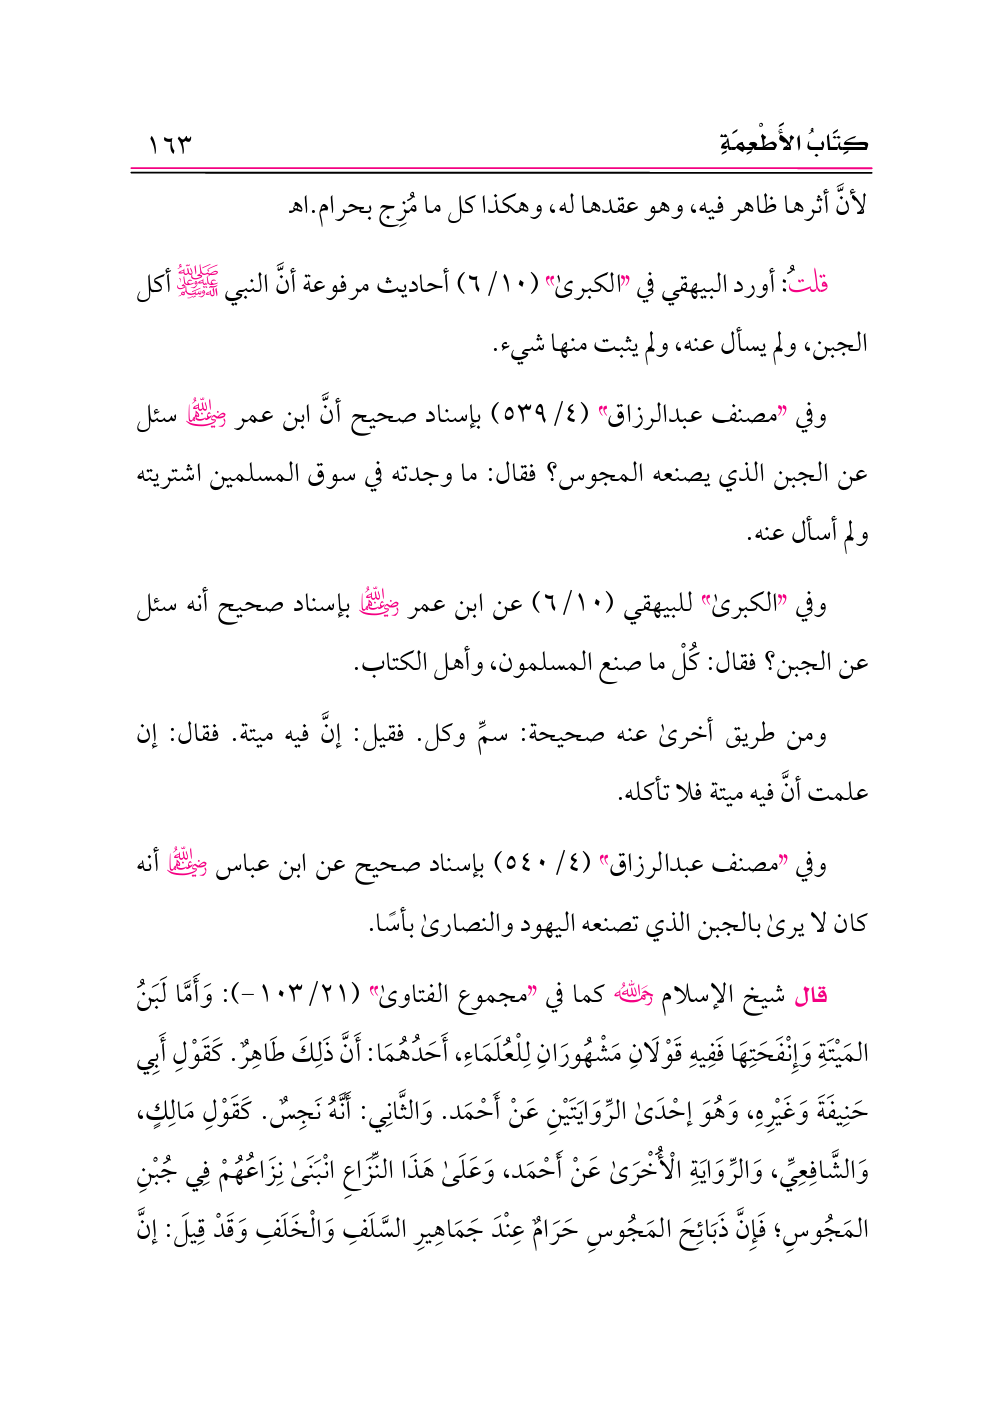 كِتَابُ الأَطْعِمَةِ ١٦٣
لأنَّ أثرها ظاهر فيه، وهو عقدها له، وهكذا كل ما مُزِج بحرام.اهـ
قلتُ: أورد البيهقي في "الكبرىٰ" (١٠/ ٦) أحاديث مرفوعة أنَّ النبي ﷺ أكل
الجبن، ولم يسأل عنه، ولم يثبت منها شيء.
وفي "مصنف عبدالرزاق" (٤/ ٥٣٩) بإسناد صحيح أنَّ ابن عمر رضي الله عنهما سئل
عن الجبن الذي يصنعه المجوس؟ فقال: ما وجدته في سوق المسلمين اشتريته
ولم أسأل عنه.
وفي "الكبرىٰ" للبيهقي (١٠/ ٦) عن ابن عمر رضي الله عنهما بإسناد صحيح أنه سئل
عن الجبن؟ فقال: كُلْ ما صنع المسلمون، وأهل الكتاب.
ومن طريق أخرىٰ عنه صحيحة: سمِّ وكل. فقيل: إنَّ فيه ميتة. فقال: إن
علمت أنَّ فيه ميتة فلا تأكله.
وفي "مصنف عبدالرزاق" (٤/ ٥٤٠) بإسناد صحيح عن ابن عباس رضي الله عنهما أنه
كان لا يرىٰ بالجبن الذي تصنعه اليهود والنصارىٰ بأسًا.
قال شيخ الإسلام رحمه الله كما في "مجموع الفتاوىٰ" (٢١/ ١٠٣-): وَأَمَّا لَبَنُ
المَيْتَةِ وَإِنْفَحَتِهَا فَفِيهِ قَوْلَانِ مَشْهُورَانِ لِلْعُلَمَاءِ، أَحَدُهُمَا: أَنَّ ذَلِكَ طَاهِرٌ. كَقَوْلِ أَبِي
حَنِيفَةَ وَغَيْرِهِ، وَهُوَ إحْدَىٰ الرِّوَايَتَيْنِ عَنْ أَحْمَد. وَالثَّانِي: أَنَّهُ نَجِسٌ. كَقَوْلِ مَالِكٍ،
وَالشَّافِعِيِّ، وَالرِّوَايَةِ الْأُخْرَىٰ عَنْ أَحْمَد، وَعَلَىٰ هَذَا النِّزَاعِ انْبَنَىٰ نِزَاعُهُمْ فِي جُبْنِ
المَجُوسِ؛ فَإِنَّ ذَبَائِحَ المَجُوسِ حَرَامٌ عِنْدَ جَمَاهِيرِ السَّلَفِ وَالْخَلَفِ وَقَدْ قِيلَ: إنَّ